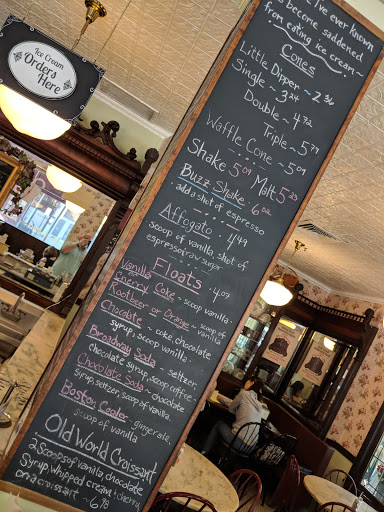 Ice Cream
Orders
Here
I've ever known
become saddened
from eating ice cream ~
Cones
Little Dipper ~ 2.36
Single ~ 3.24
Double ~ 4.72
Triple ~ 5.79
Waffle Cone ~ 5.09
Shake 5.09 Malt 5.25
Buzz Shake . 6.02
. add a shot of espresso
Affogato . 4.49
scoop of vanilla, shot of
espresso, raw sugar
Floats . 4.07
Vanilla
Cherry Coke . scoop vanilla.
Rootbeer or Orange . scoop of vanilla
Chocolate . coke, chocolate
syrup, scoop vanilla.
Broadway Soda . seltzer
chocolate syrup, scoop coffee.
Chocolate Soda . chocolate
syrup, seltzer, scoop of vanilla.
Boston Cooler . gingerale,
scoop of vanilla
Old World Croissant
2 scoops of vanilla, chocolate
syrup, whipped cream & cherry
on a croissant ~ 6.78